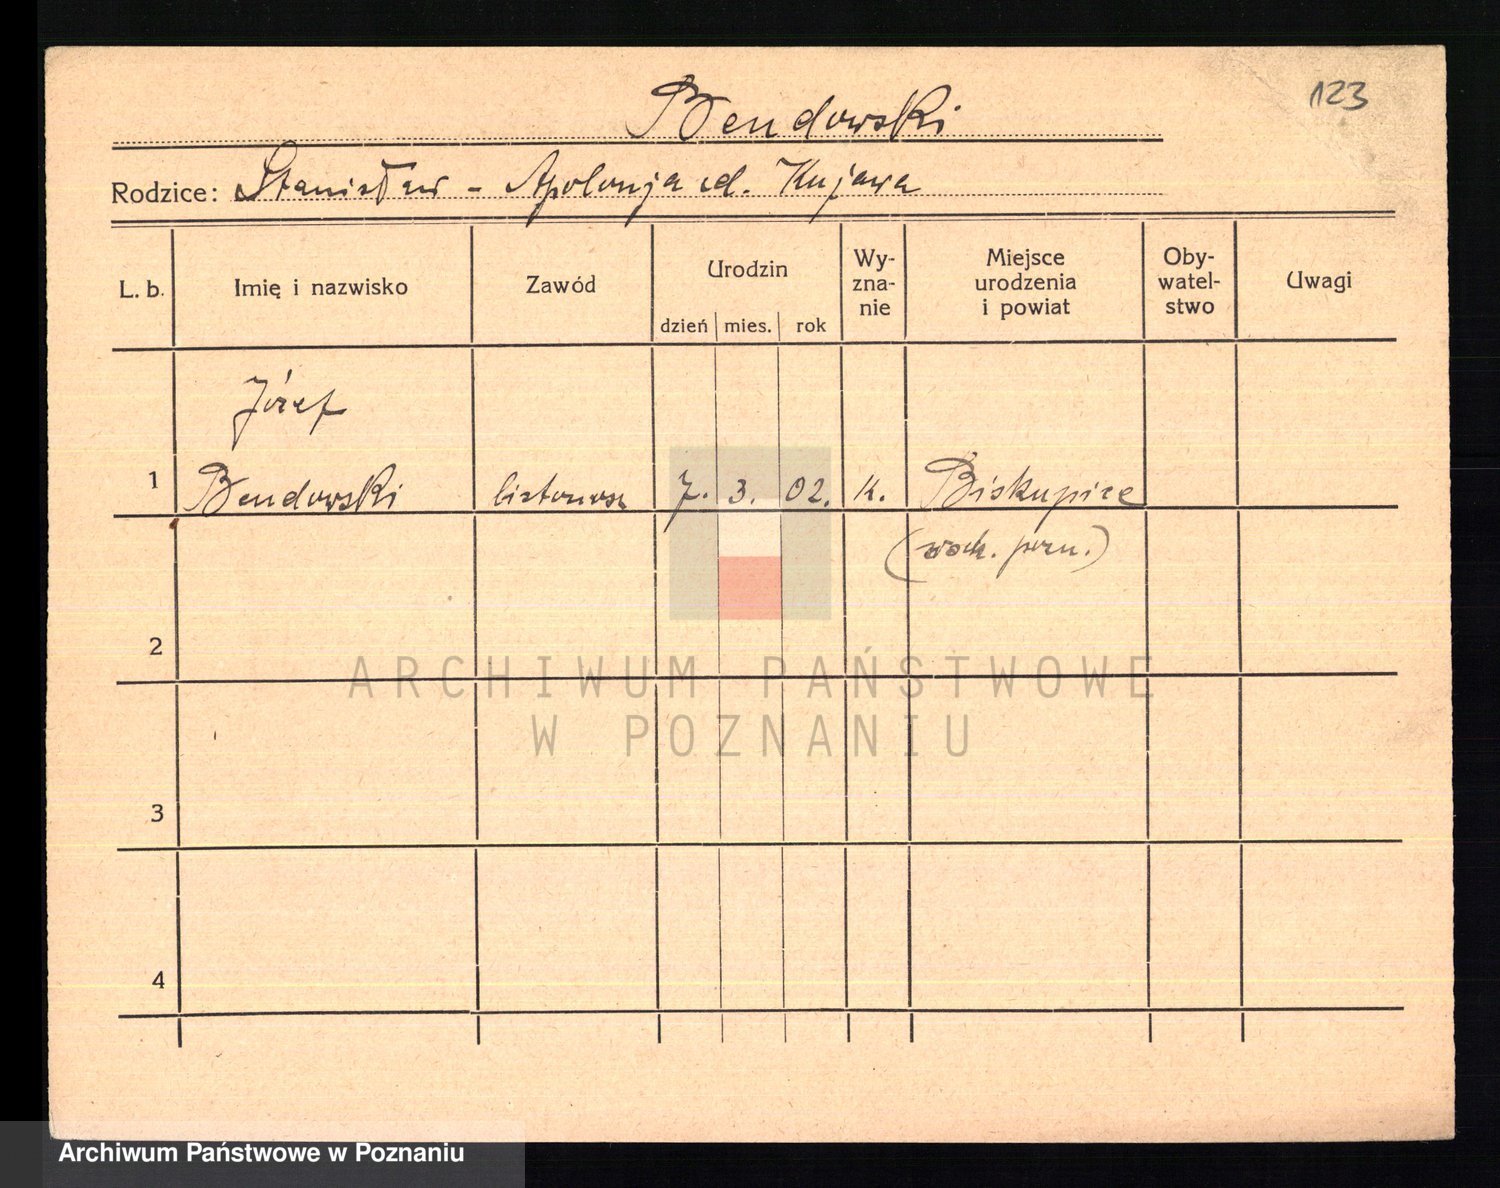 123
Bendowski
Rodzice: Stanisław - Apolonja zd. Kujawa
L. b. Imię i nazwisko Zawód Urodzin dzień mies. rok Wy-zna-nie Miejsce urodzenia i powiat Oby-watel-stwo Uwagi
Józef
1 Bendowski listonosz 7. 3. 02. k. Biskupice
(zach. pozn.)
2
ARCHIWUM PAŃSTWOWE
W POZNANIU
3
4
Archiwum Państwowe w Poznaniu